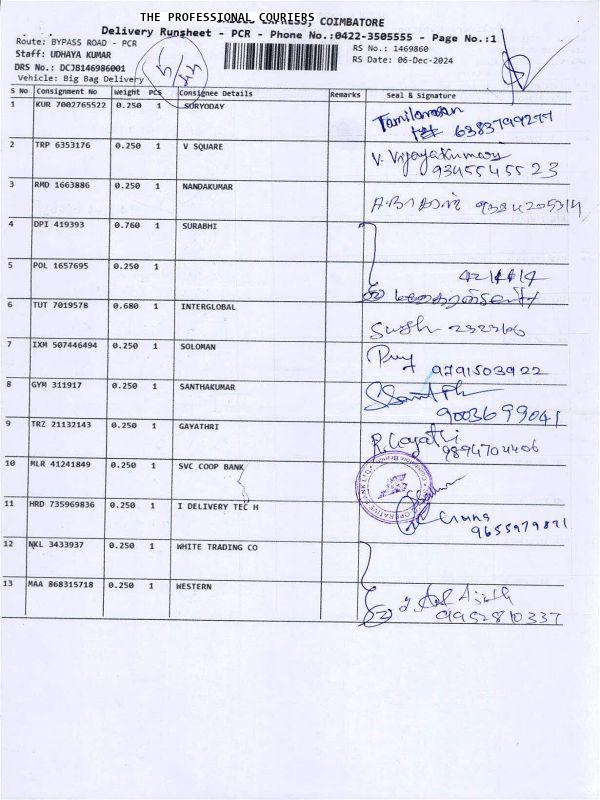 THE PROFESSIONAL COURIERS
EXPRESS, COIMBATORE
Delivery Runsheet - PCR - Phone No.:0422-3505555 - Page No.:1
Route: BYPASS ROAD - PCR
RS No.: 1469860
Staff: UDHAYA KUMAR
RS Date: 06-Dec-2024
DRS No.: DCJB146986001
Vehicle: Big Bag Delivery
S No Consignment No Weight PCS Consignee Details Remarks Seal & Signature
1 KUR 7002765522 0.250 1 SORYODAY Tamilarasan
6383799277
2 TRP 6353176 0.250 1 V SQUARE V. Vijayakumar
9345545523
3 RMD 1663886 0.250 1 NANDAKUMAR 9384205314
4 DPI 419393 0.760 1 SURABHI
5 POL 1657695 0.250 1 4214414
6 TUT 7019578 0.680 1 INTERGLOBAL 232266
7 IXM 507446494 0.250 1 SOLOMAN
9791503922
8 GYM 311917 0.250 1 SANTHAKUMAR
9003699041
9 TRZ 21132143 0.250 1 GAYATHRI R. Gayathri
9894704406
10 MLR 41241849 0.250 1 SVC COOP BANK
11 HRD 735969836 0.250 1 I DELIVERY TEC H
9655979871
12 NKL 3433937 0.250 1 WHITE TRADING CO
13 MAA 868315718 0.250 1 WESTERN
9952810337